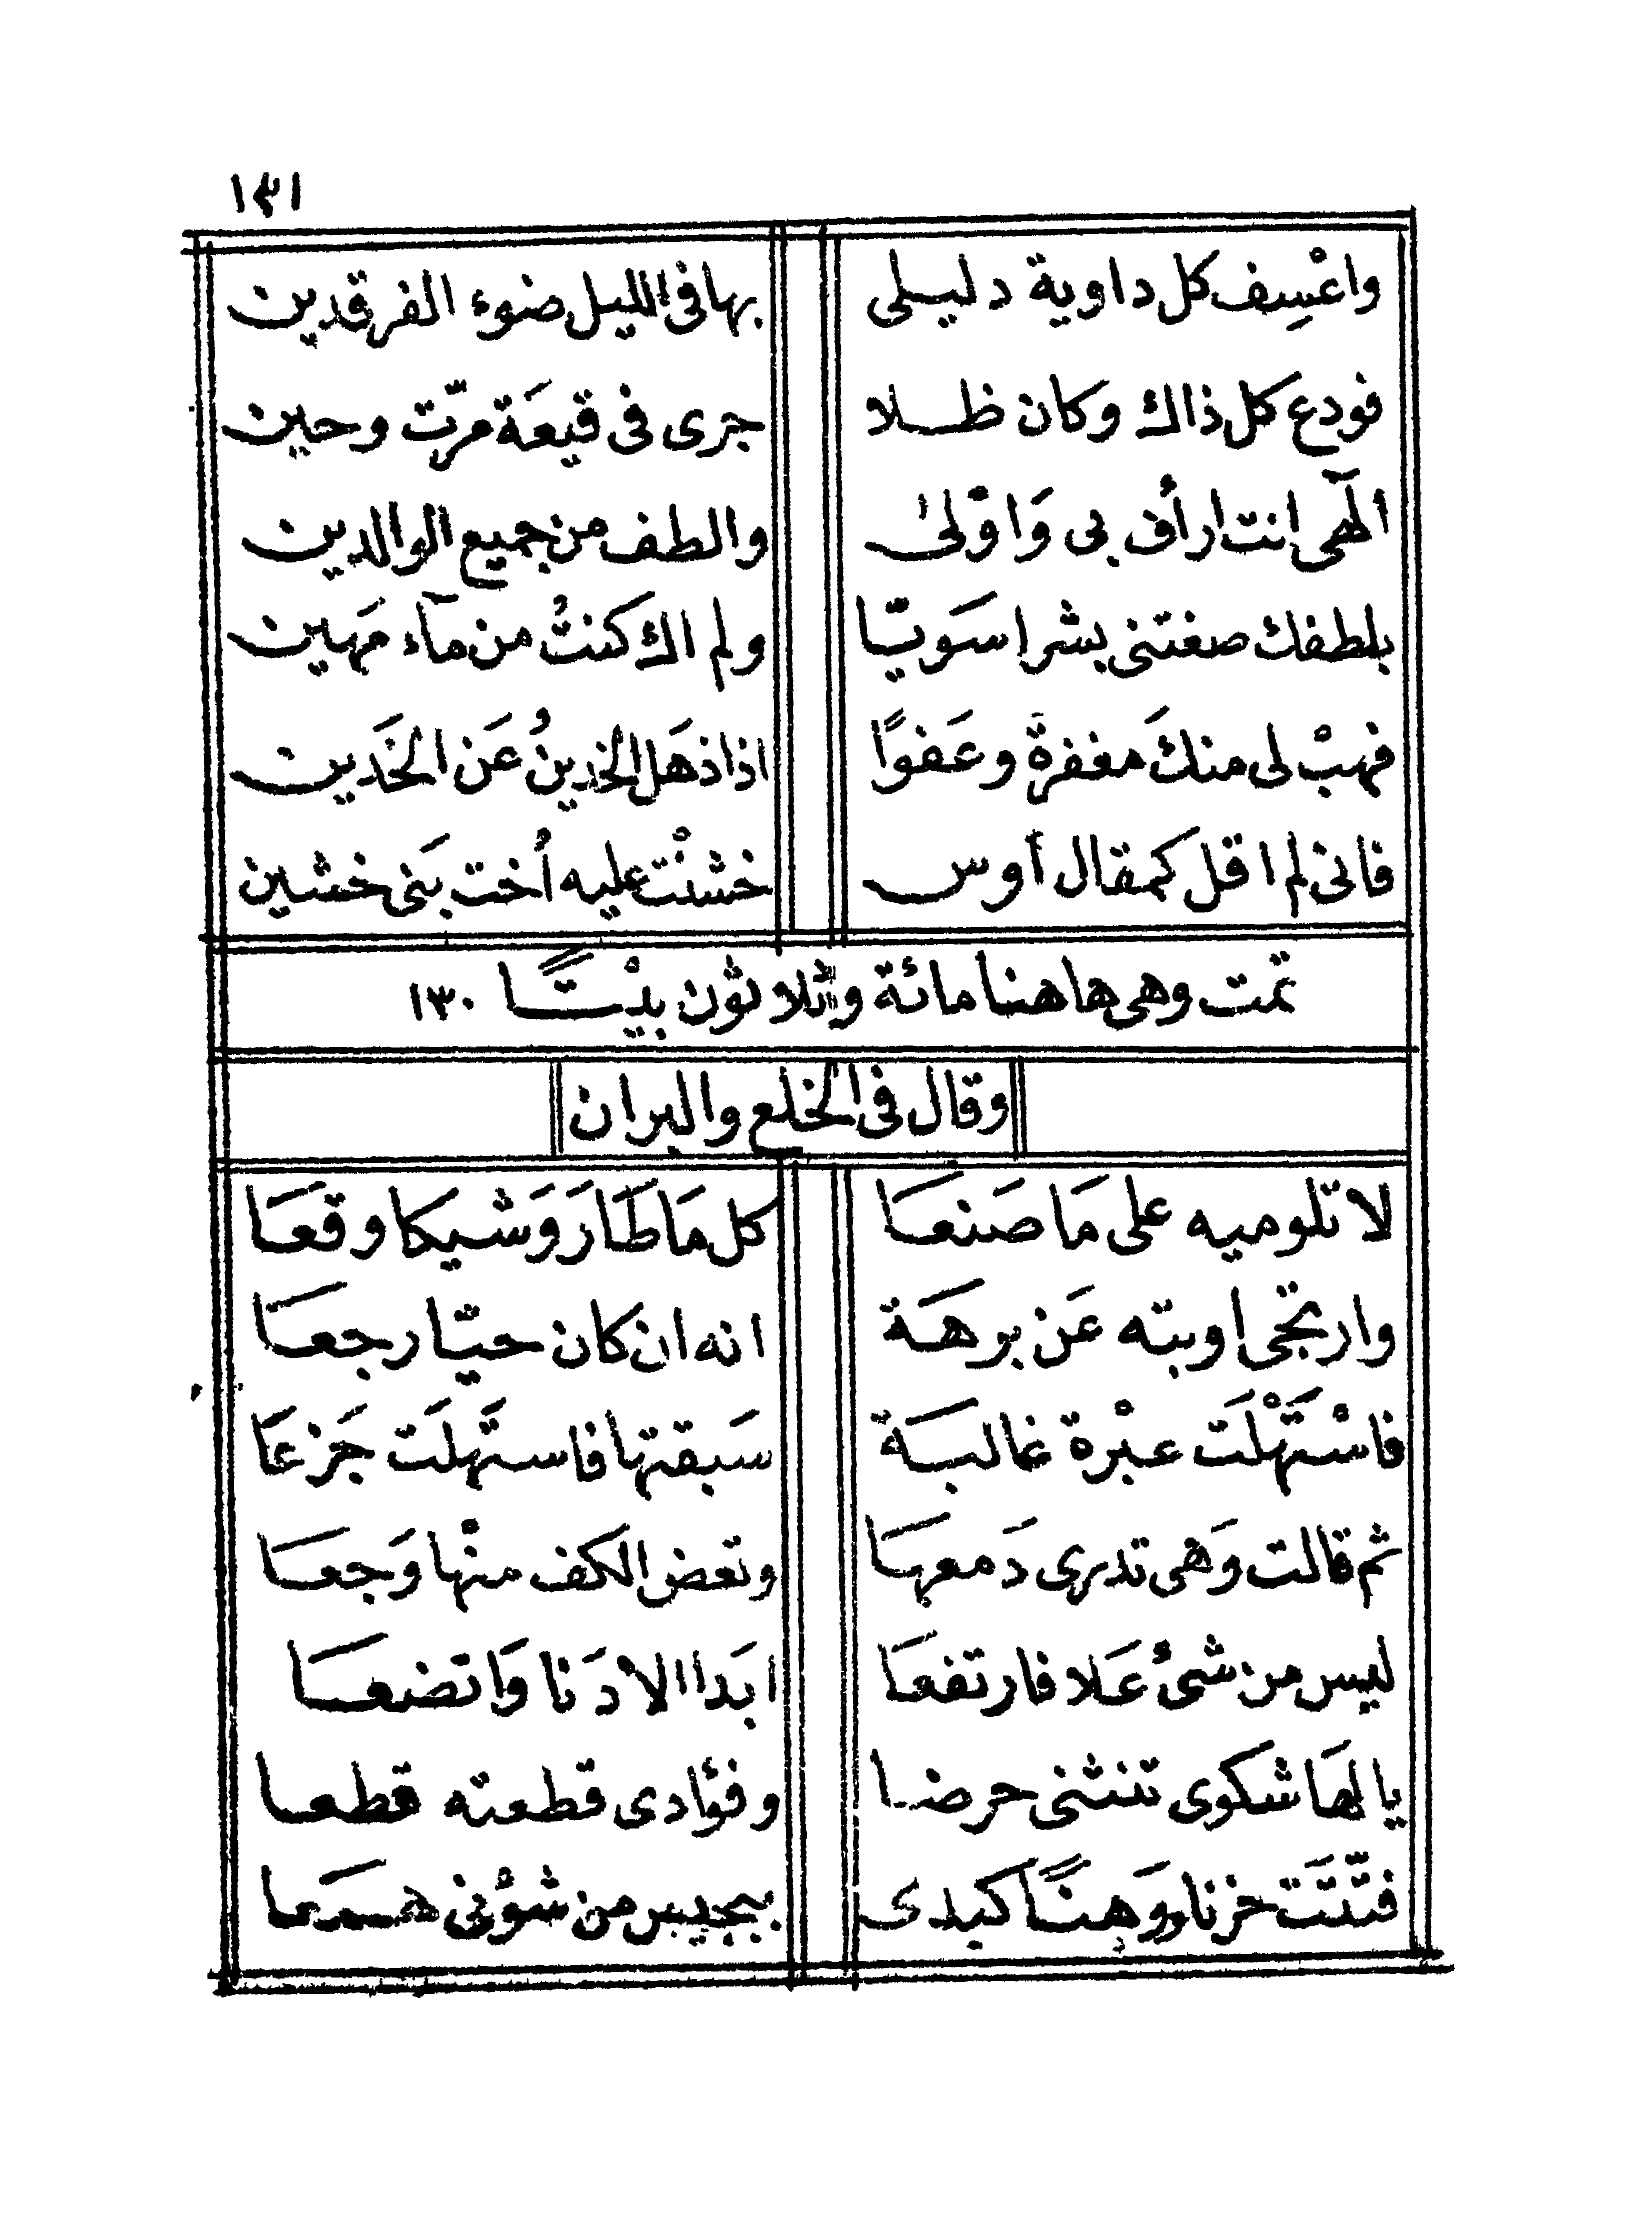 ١٣١
واعْسِف كل داوية دليلى بها فى الليل ضوء الفرقدين
فودع كل ذاك وكان ظلا جرى فى قيعَة مرّت وحين
الهٓى انت ارأُف بى وَاوْلىٰ والطف من جميع الوالدين
بلطفك صغتنى بشرا سَويّا ولم اك كنتُ من مآء مَهين
فهبْ لى منكَ مغفرةً وعَفوًا اذا ذهَل الخدينُ عَن الخَدين
فانى لم اقل كمقال أوس خشنْت عليه أُخت بَنى خشين
تمت وهى هاهنا مائة وثلاثون بيْتًا ١٣٠
وقال فى الخلع والبران
لا تلوميه على مَا صَنعَا كل مَا طَارَ وَشيكا وقعَا
وارتجى اوبته عَن برهَة انه ان كان حيّا رجعَا
فاسْتَهْلَت عبْرة غالبَة سَبقتها فاستَهلَت جَزعَا
ثم قالت وَهى تدرى دَمعهَا وتعض الكف منْها وَجعَا
ليس من شئُ عَلا فارتفعَا ابَدا الا دَنا وَاتضعَا
يا لهَا شكوى تنثنى حرضا وفؤادى قطعته قطعا
فتّتَت حزنا ووَهنًا كبدى من شؤنى همعَا